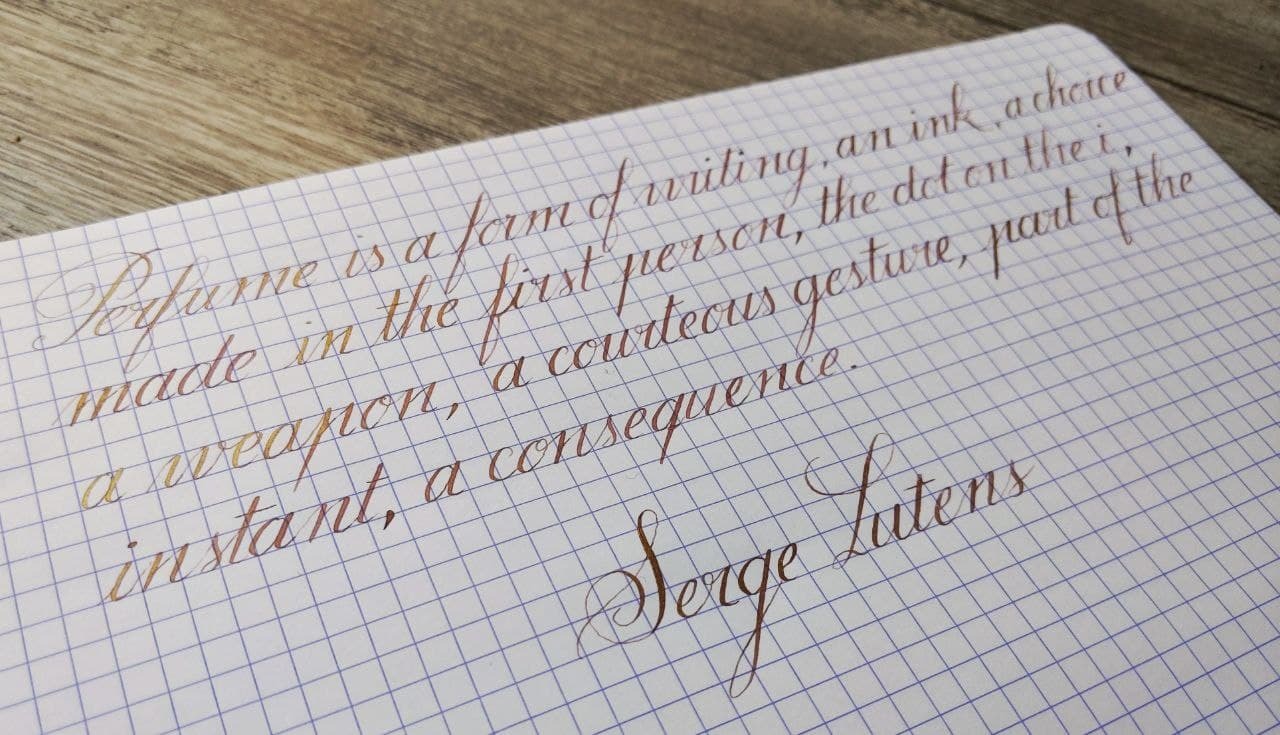 Perfume is a form of writing, an ink, a choice
made in the first person, the dot on the i,
a weapon, a courteous gesture, part of the
instant, a consequence.
Serge Lutens